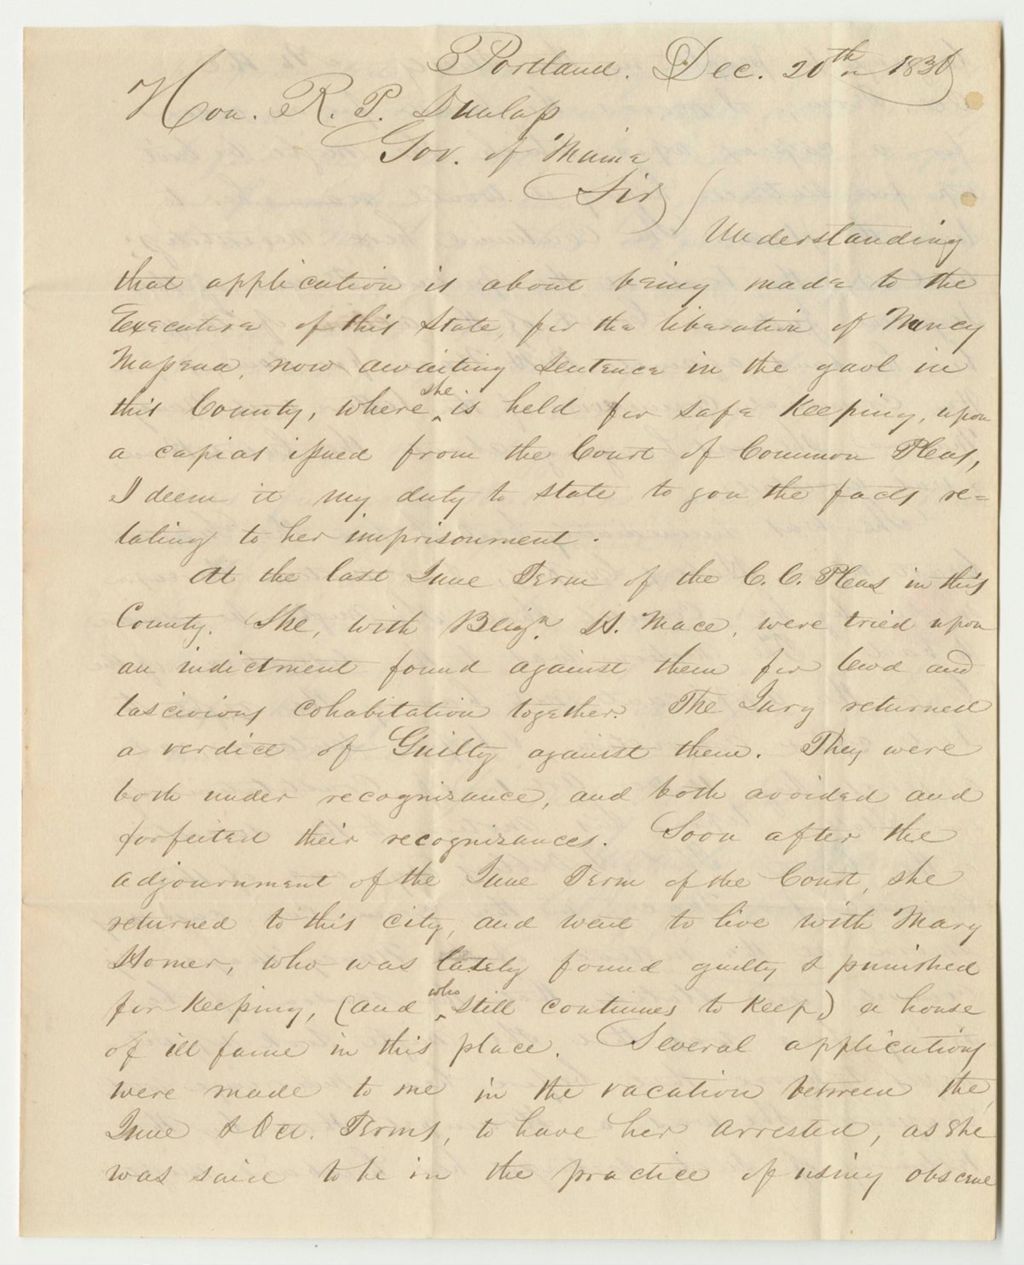 Portland. Dec. 20th 1836
Hon. R. P. Dunlap
Gov. of Maine
Sir
Understanding
that application is about being made to the
Executive of this State, for the liberation of Nancy
now awaiting sentence in the gaol in
this County, where she is held for safe keeping, upon
a capias issued from the Court of Common Pleas,
I deem it my duty to state to you the facts re=
lating to her imprisonment.
At the last June Term of the C. C. Pleas in this
County. She, with Benjn. H. Mace, were tried upon
an indictment found against them for lewd and
lascivious cohabitation together. The Jury returned
a verdict of Guilty against them. They were
both under recognisance, and both avoided and
forfeited their recognizances. Soon after the
adjournment of the June Term of the Court, she
returned to this city, and went to live with Mary
Homer, who was lately found guilty & punished
for keeping, (and who still continues to keep,) a house
of ill fame in this place. Several applications
were made to me in the vacation between the
June & Oct. Terms, to have her arrested, as she
was said to be in the practice of using obscene